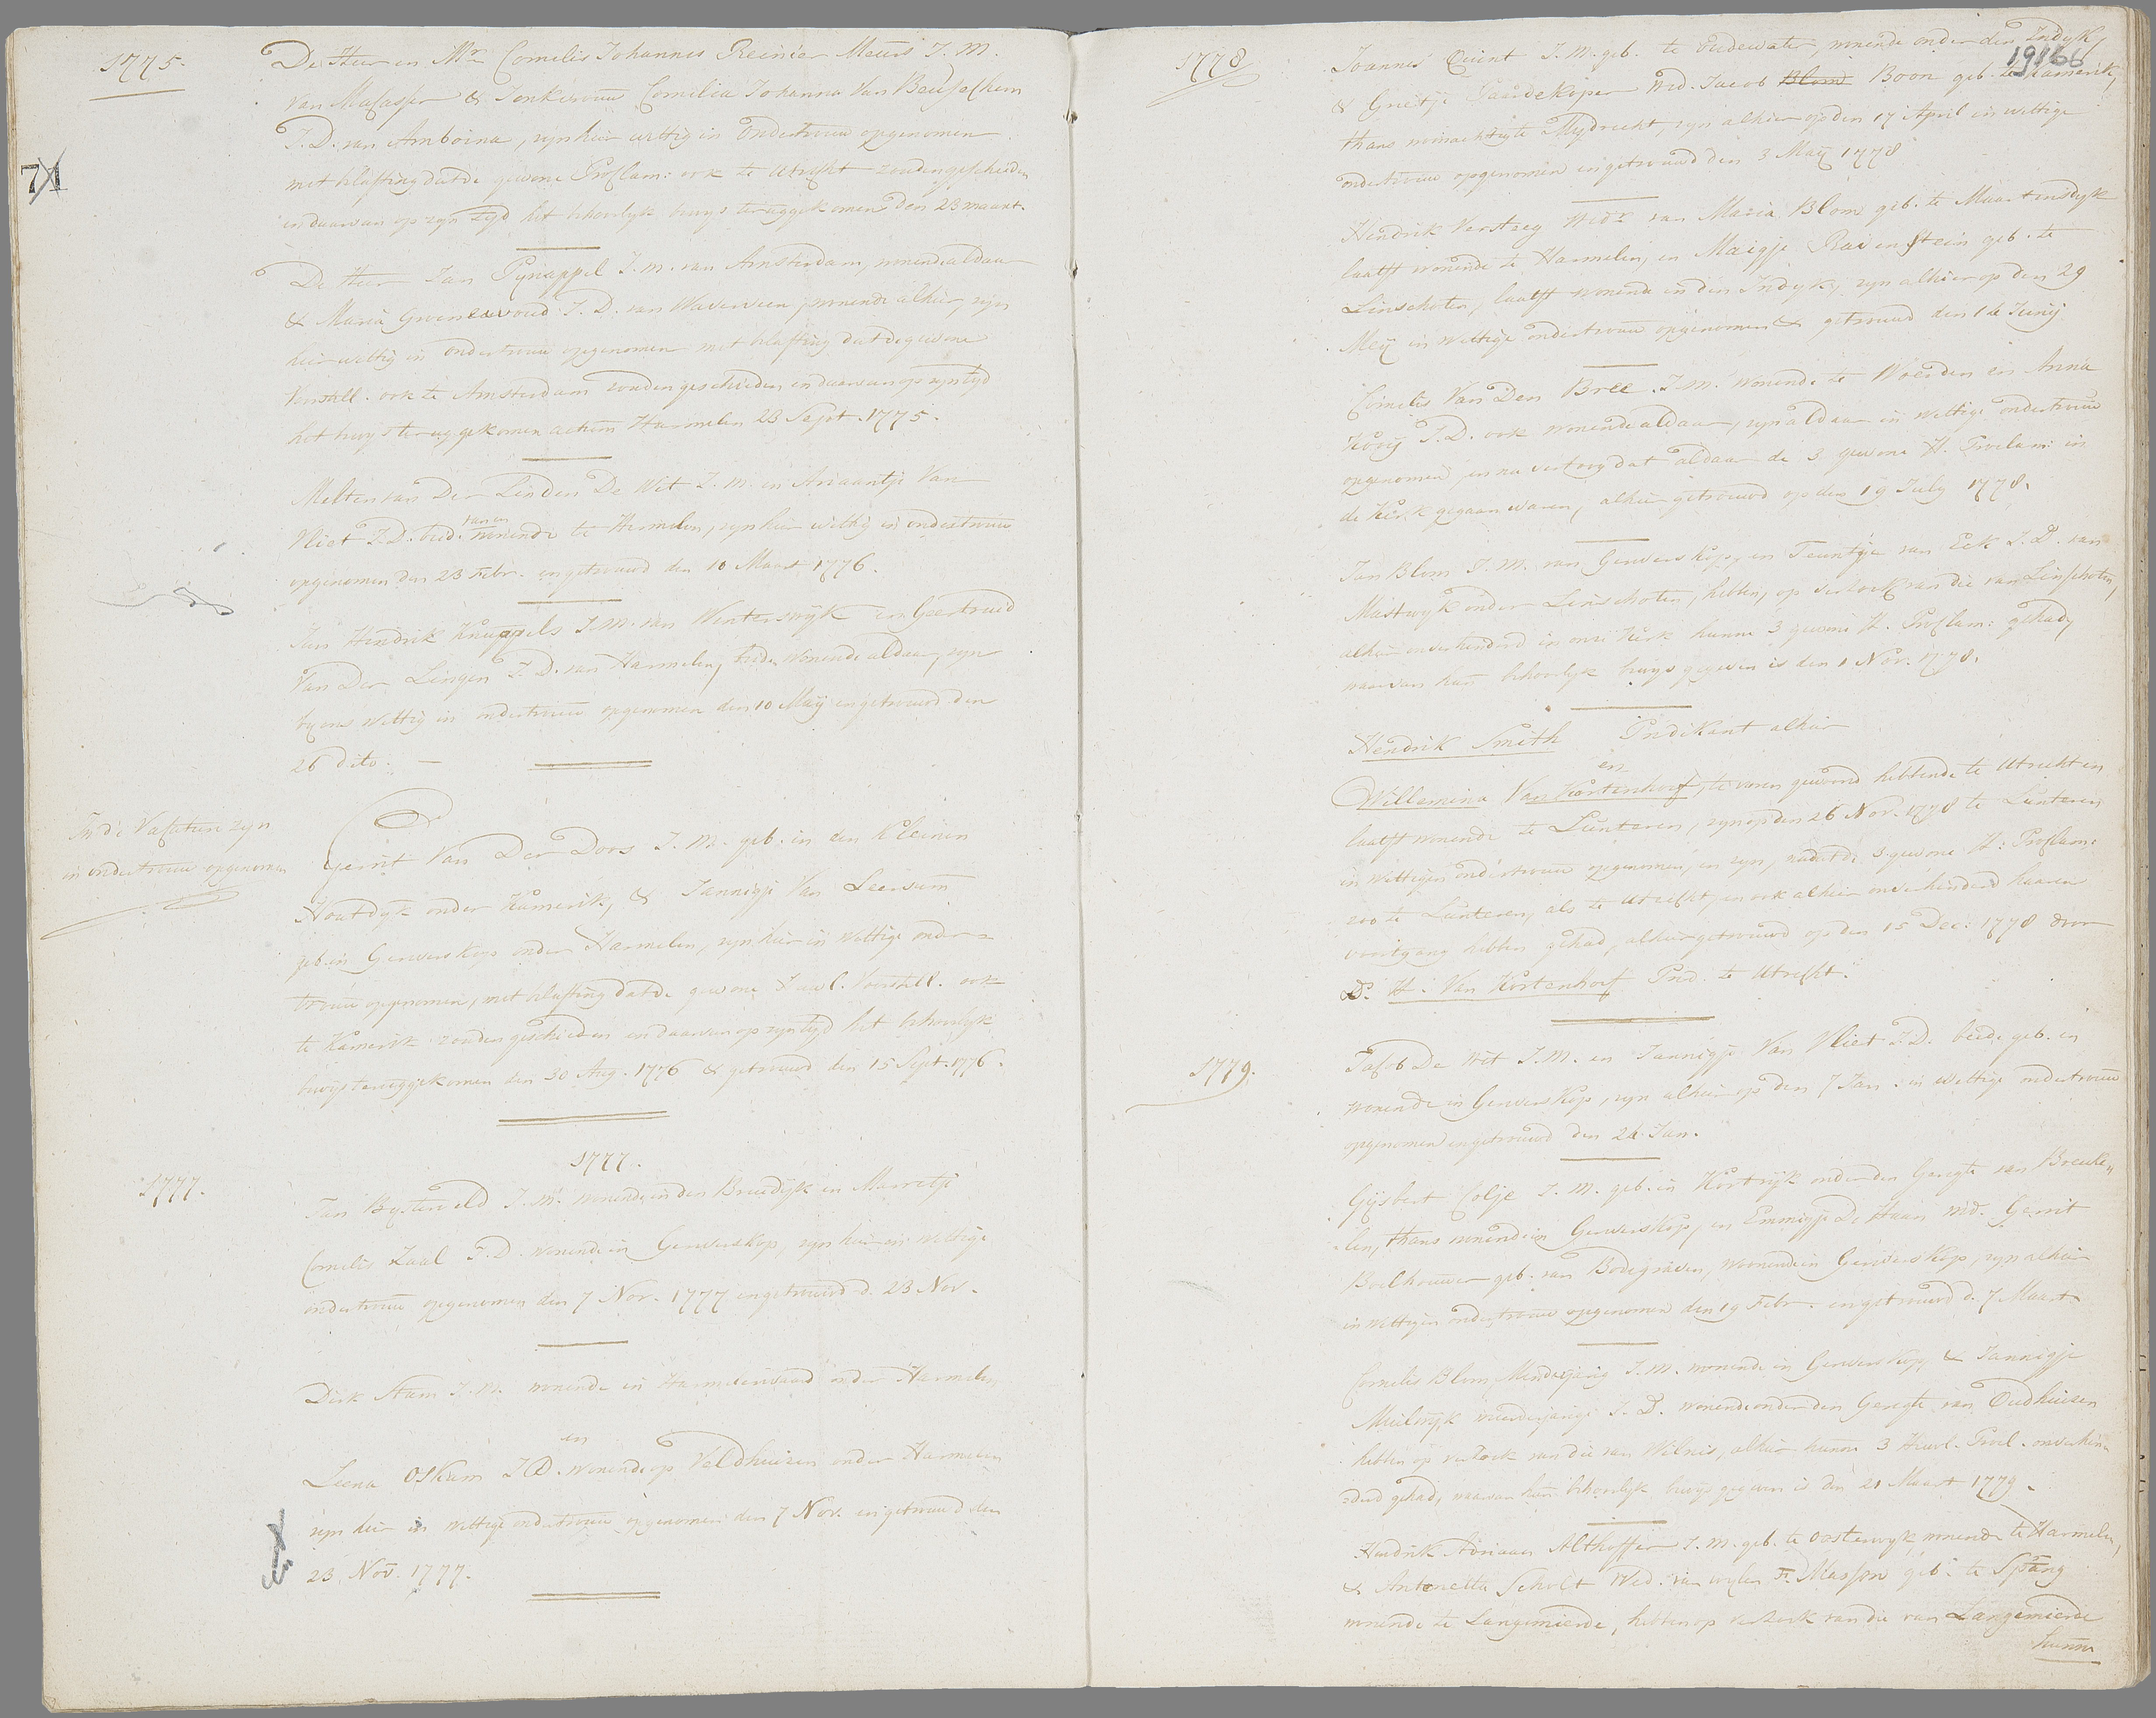 1775.
De Heer en Mr. Cornelis Johannes Reinier Meurs J. M.
van Macasser & Jonkvrouw Cornelia Johanna Van Beusechem
J. D. van Amboina, zyn hier wettig in ondertrouw opgenomen
met belasting dat de gewone Proclam: ook te Utrecht zouden geschieden
en daarvan op zyn tyd het behoorlyk bewys teruggekomen den 23 maart.
71
De Heer Jan Pynappel J. m. van Amsterdam, wonende aldaar
& Maria Groeneewoud J. D. van Waverveen, wonende alhier, zyn
hier wettig in ondertrouw opgenomen met belasting dat de gewone
Voorstell. ook te Amsterdam zouden geschieden, en daarvan op zyn tyd
het bewys teruggekomen actum Harmelen 23 Sept. 1775.
Melten van Der Linden De Wit J. M. en Ariaantje Van
Vliet J. D. beid. van en wonende te Hermelen, zyn hier wettig in ondertrouw
opgenomen den 23 Febr. en getrouwd den 10 Maart 1776.
Jan Hendrik Knuppels J. M. van Winterswyk en Geertruid
Van Der Lingen J. D. van Harmelen, beide wonende aldaar, zyn
by ons wettig in ondertrouw opgenomen den 10 Maij en getrouwd den
26 dito.
In de Vacature zyn
in ondertrouw opgenomen
Gerrit Van Der Doos J. M. geb. in den Kleinen
Houtdyk onder Kamerik, & Jannigje Van Leersum
geb. in Gerverskop onder Harmelen, zyn hier in wettige onder=
trouw opgenomen, met belasting dat de gewone Huwl. Voorstell. ook
te Kamerik zouden geschieden en daarvan op zyn tyd het behoorlyk
bewys teruggekomen den 30 Aug. 1776 & getrouwd den 15 Sept. 1776.
1777.
1777.
Jan Bysterveld J. M. wonende in den Breedyk en Marretje
Cornelis Zaal J. D. wonende in Gerverskop, zyn hier in wettige
ondertrouw opgenomen den 7 Nov. 1777 en getrouwd d. 23 Nov.
Dirk Stam J. M. wonende in Harmelerwaard onder Harmelen
en
Leena Oskam J D. wonende op Veldhuizen onder Harmelen
zyn hier in wettige ondertrouw opgenomen den 7 Nov. en getrouwd den
23. Nov. 1777.
1778
19166
Joannes Quint J. M. geb. te Oudewater, wonende onder den Indyk,
& Grietje Paardekoper Wed. Jacob Blom Boon geb. te Kamerik,
thans woonachtig te Mydrecht, zyn alhier op den 17 April in wettige
ondertrouw opgenomen en getrouwd den 3 Maij 1778
Hendrik Verstzeg Wedr. van Maria Blom geb. te Maartensdyk
laatst wonende te Harmelen, en Maigje Ravenstein geb. te
Linschoten, laatst wonende in den Indyk, zyn alhier op den 29
Meij in wettige ondertrouw opgenomen & getrouwd den 14 Junij
Cornelis Van Den Bree J. M. wonende te Woerden en Anna
Kooij J. D. ook wonende aldaar, zyn aldaar in wettige ondertrouw
opgenomen, en na vertoog dat aldaar de 3 gewone H. Proclam: in
de Kerk gegaan waren, alhier getrouwd op den 19 July 1778.
Jan Blom J. M. van Gerverskop, en Teuntje van Eck J. D. van
Mastwyk onder Linschoten, hebben, op verzoek van die van Linschoten,
alhier onverhinderd in onze Kerk hunne 3 gewone H. Proclam: gehad,
waarvan hun behoorlyk bewys gegeven is den 1 Nov. 1778.
Hendrik Smith Predikant alhier
en
Willemina Van Kortenhoef, te voren gewoond hebbende te Utrecht en
laatst wonende te Lunteren, zyn op den 26 Nov. 1778 te Lunteren
in wettigen ondertrouw opgenomen, en zyn, nadat de 3 gewone H: Proclam:
zoo te Lunteren, als te Utrecht, en ook alhier onverhinderd haaren
voortgang hebben gehad, alhier getrouwd op den 15 Dec: 1778 door
Ds. H. Van Kortenhoef Pred. te Utrecht.
1779.
Jacob De Wit J. M. en Jannigje Van Vliet J. D. beide geb. en
wonende in Gerverskop, zyn alhier op den 7 Jan. in wettige ondertrouw
opgenomen en getrouwd den 24 Jan.
Gysbert Colje J. M. geb. in Kortryk onder den Geregte van Breuke„
len, thans wonende in Gerverskop, en Emmigje De Haan wed. Gerrit
Boelhouwer geb. van Bodegraven, woonende in Gerverskop, zyn alhier
in wettigen ondertrouw opgenomen den 19 Febr. en getrouwd d. 7 Maart
Cornelis Blom, Minderjarig J. M. wonende in Gerverskop, & Jannigje
Muilwyk minderjarige J. D. wonende onder den Geregte van Oudhuizen
hebben op verzoek van die van Wilnis, alhier hunne 3 Huwl. Procl. onverhin=
derd gehad, waarvan hun behoorlyk bewys gegeven is den 21 Maart 1779.
Hendrik Adriaan Althoffer J. M. geb. te Oosterwyk, wonende te Harmelen,
& Antonetta Scholt Wed. van wylen F. Masson geb. te Sprang
wonende te Langemierde, hebben op verzoek van die van Langemierde
hunne